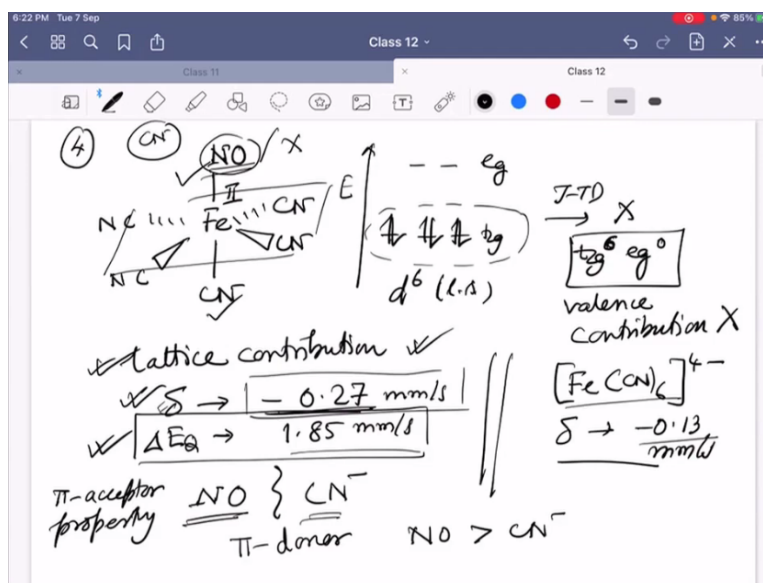 6:22 PM Tue 7 Sep
85%
Class 12
Class 11
Class 12
④ CN⁻
NO X
II
NC Fe CN
NC CN
CN⁻
E
eg
t2g
d⁶ (l.s)
J-TD
→ X
t2g⁶ eg⁰
valence
contribution X
Lattice contribution
δ → -0.27 mm/s
ΔEQ → 1.85 mm/s
[Fe(CN)6]⁴⁻
δ → -0.13
mm/s
π-acceptor
property NO } CN⁻
π-donor NO > CN⁻